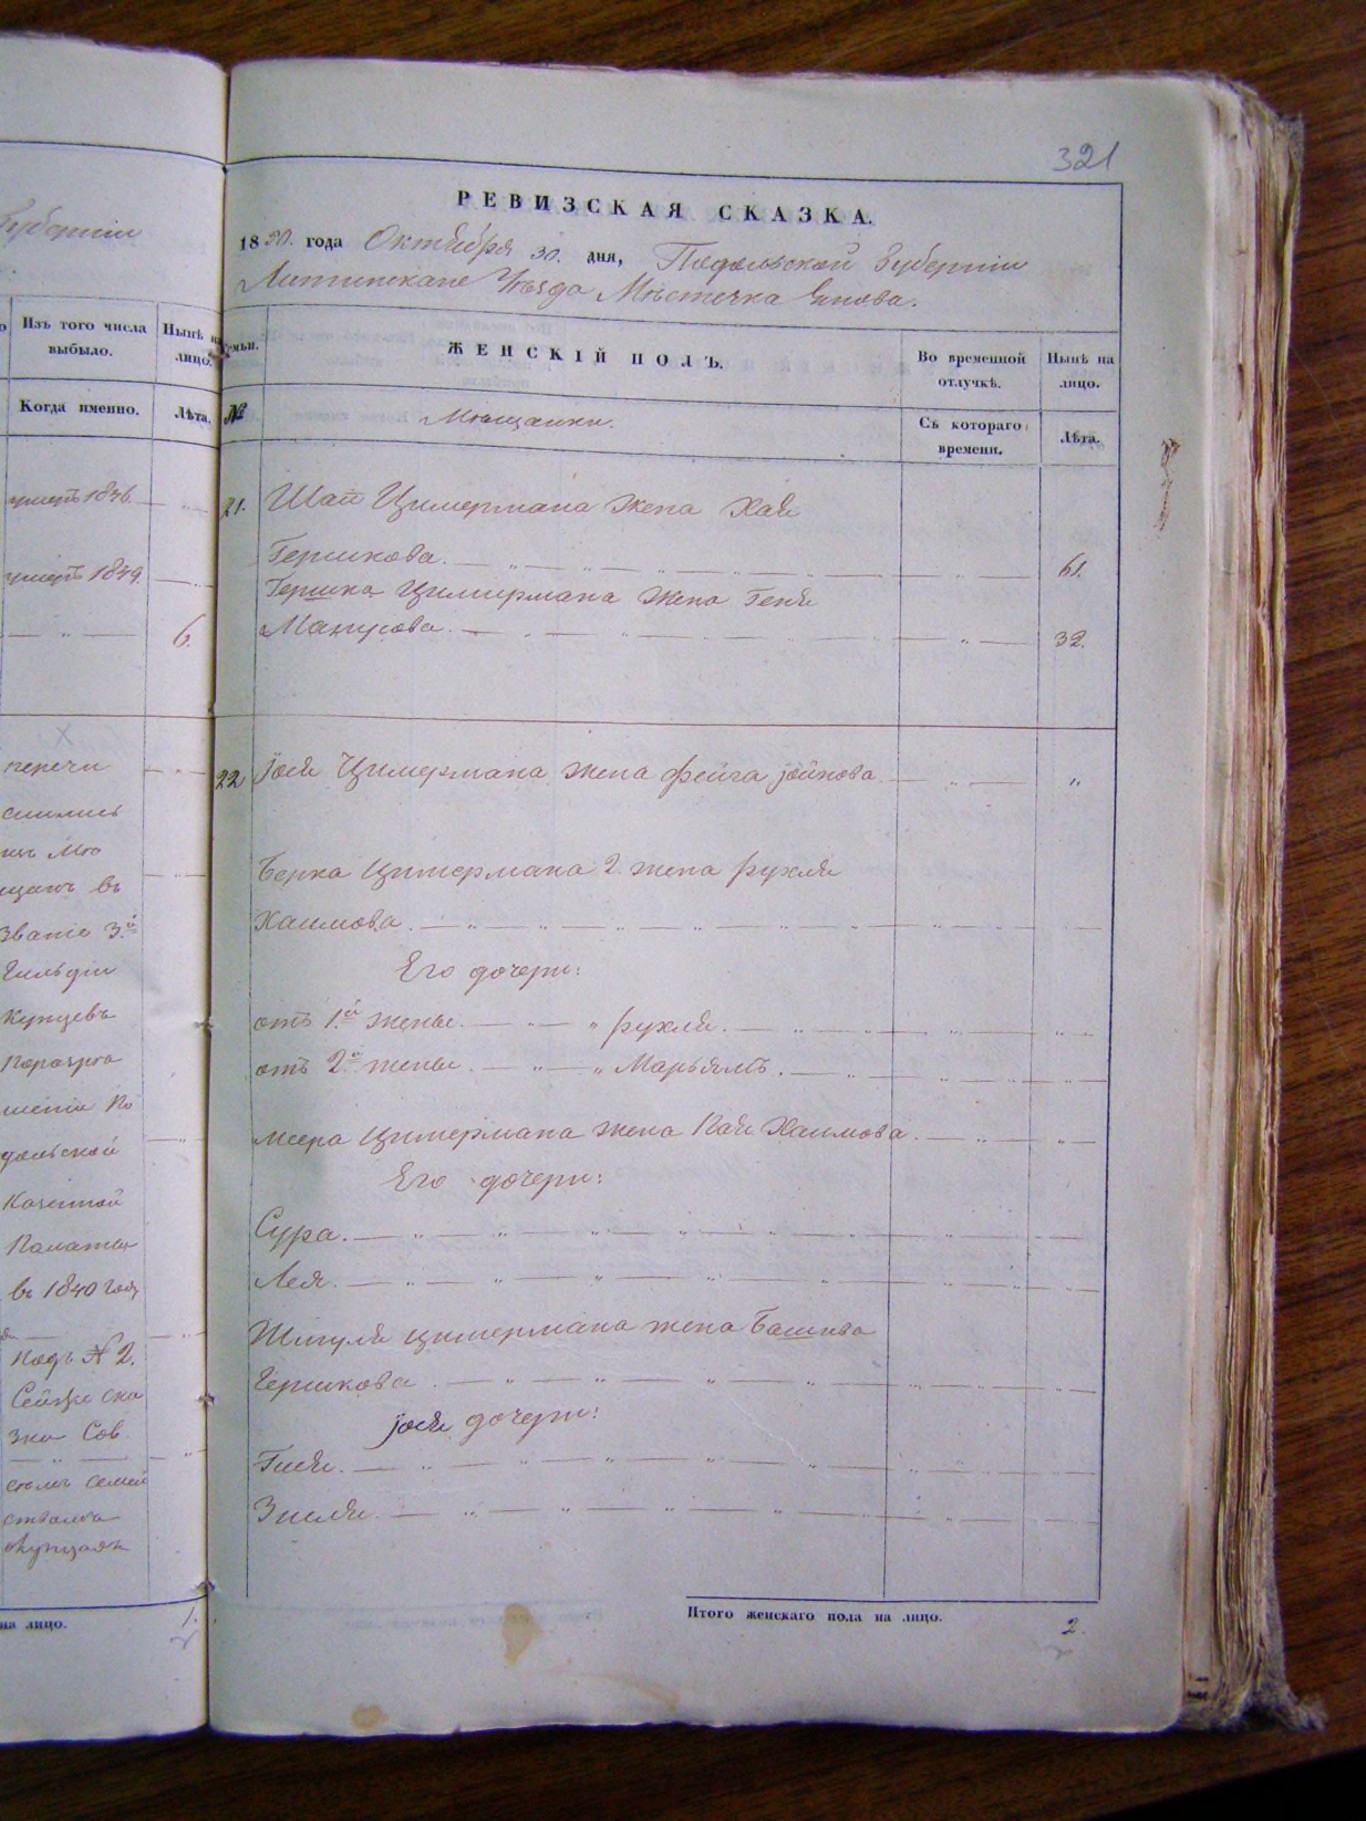 321
РЕВИЗСКАЯ СКАЗКА.
1850. года Октября 30. дня, Подольской Губернiи
Литинскаго Уѣзда Мѣстечка Янова.
Губернiи
Изъ того числа выбыло.
Ныпѣ на лицо.
Когда именно.
Лѣта.
умеръ 1846.
умеръ 1849.
6.
перечи
слились
изъ Мѣ
щанъ въ
Званiе 3.й
Гильдiи
Купцевъ
по
шенiю По
дольской
Казенной
Палаты
въ 1840 году
подъ № 2.
Сей ска
зки Сов
семъ семей
ствомъ
на лицо.
1.
Семьи.
ЖЕНСКІЙ ПОЛЪ.
Во временной отлучкѣ.
Нынѣ на лицо.
№
Мѣщанки.
Съ котораго времени.
Лѣта.
21. Шаи Цимермана жена Хая
Гершкова. 61.
Гершка Цимермана жена Геня
32.
22 Іося Цимермана жена фейга Іойнова "
Берка Цимермана 2. жена рухля
Хаимова.
Его дочери:
отъ 1.й жены. " рухля.
отъ 2.й жены. " Марьямъ.
меера Цимермана жена Хаимова.
Его дочери:
Сура.
Лея.
Шмуля цимермана жена
Гершкова.
Іося дочери:
Гися.
Зисля.
Итого женскаго пола на лицо. 2.